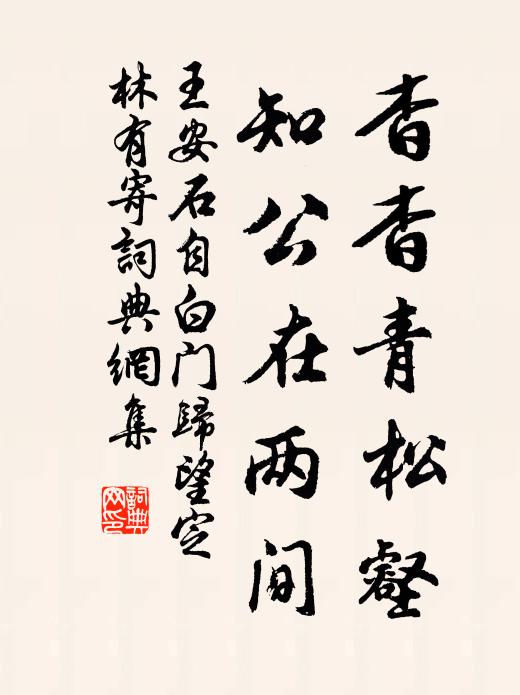 杳杳青松壑
知公在两间
王安石自白门歸望定
林有寄詞典網集
詞典
网印